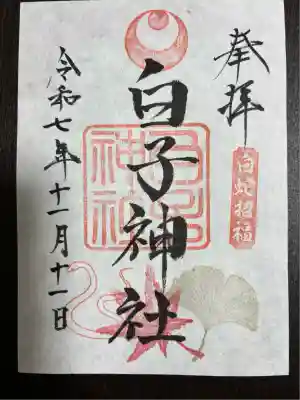 奉拝
白蛇招福
白子神社
白子神社
令和七年十一月十一日